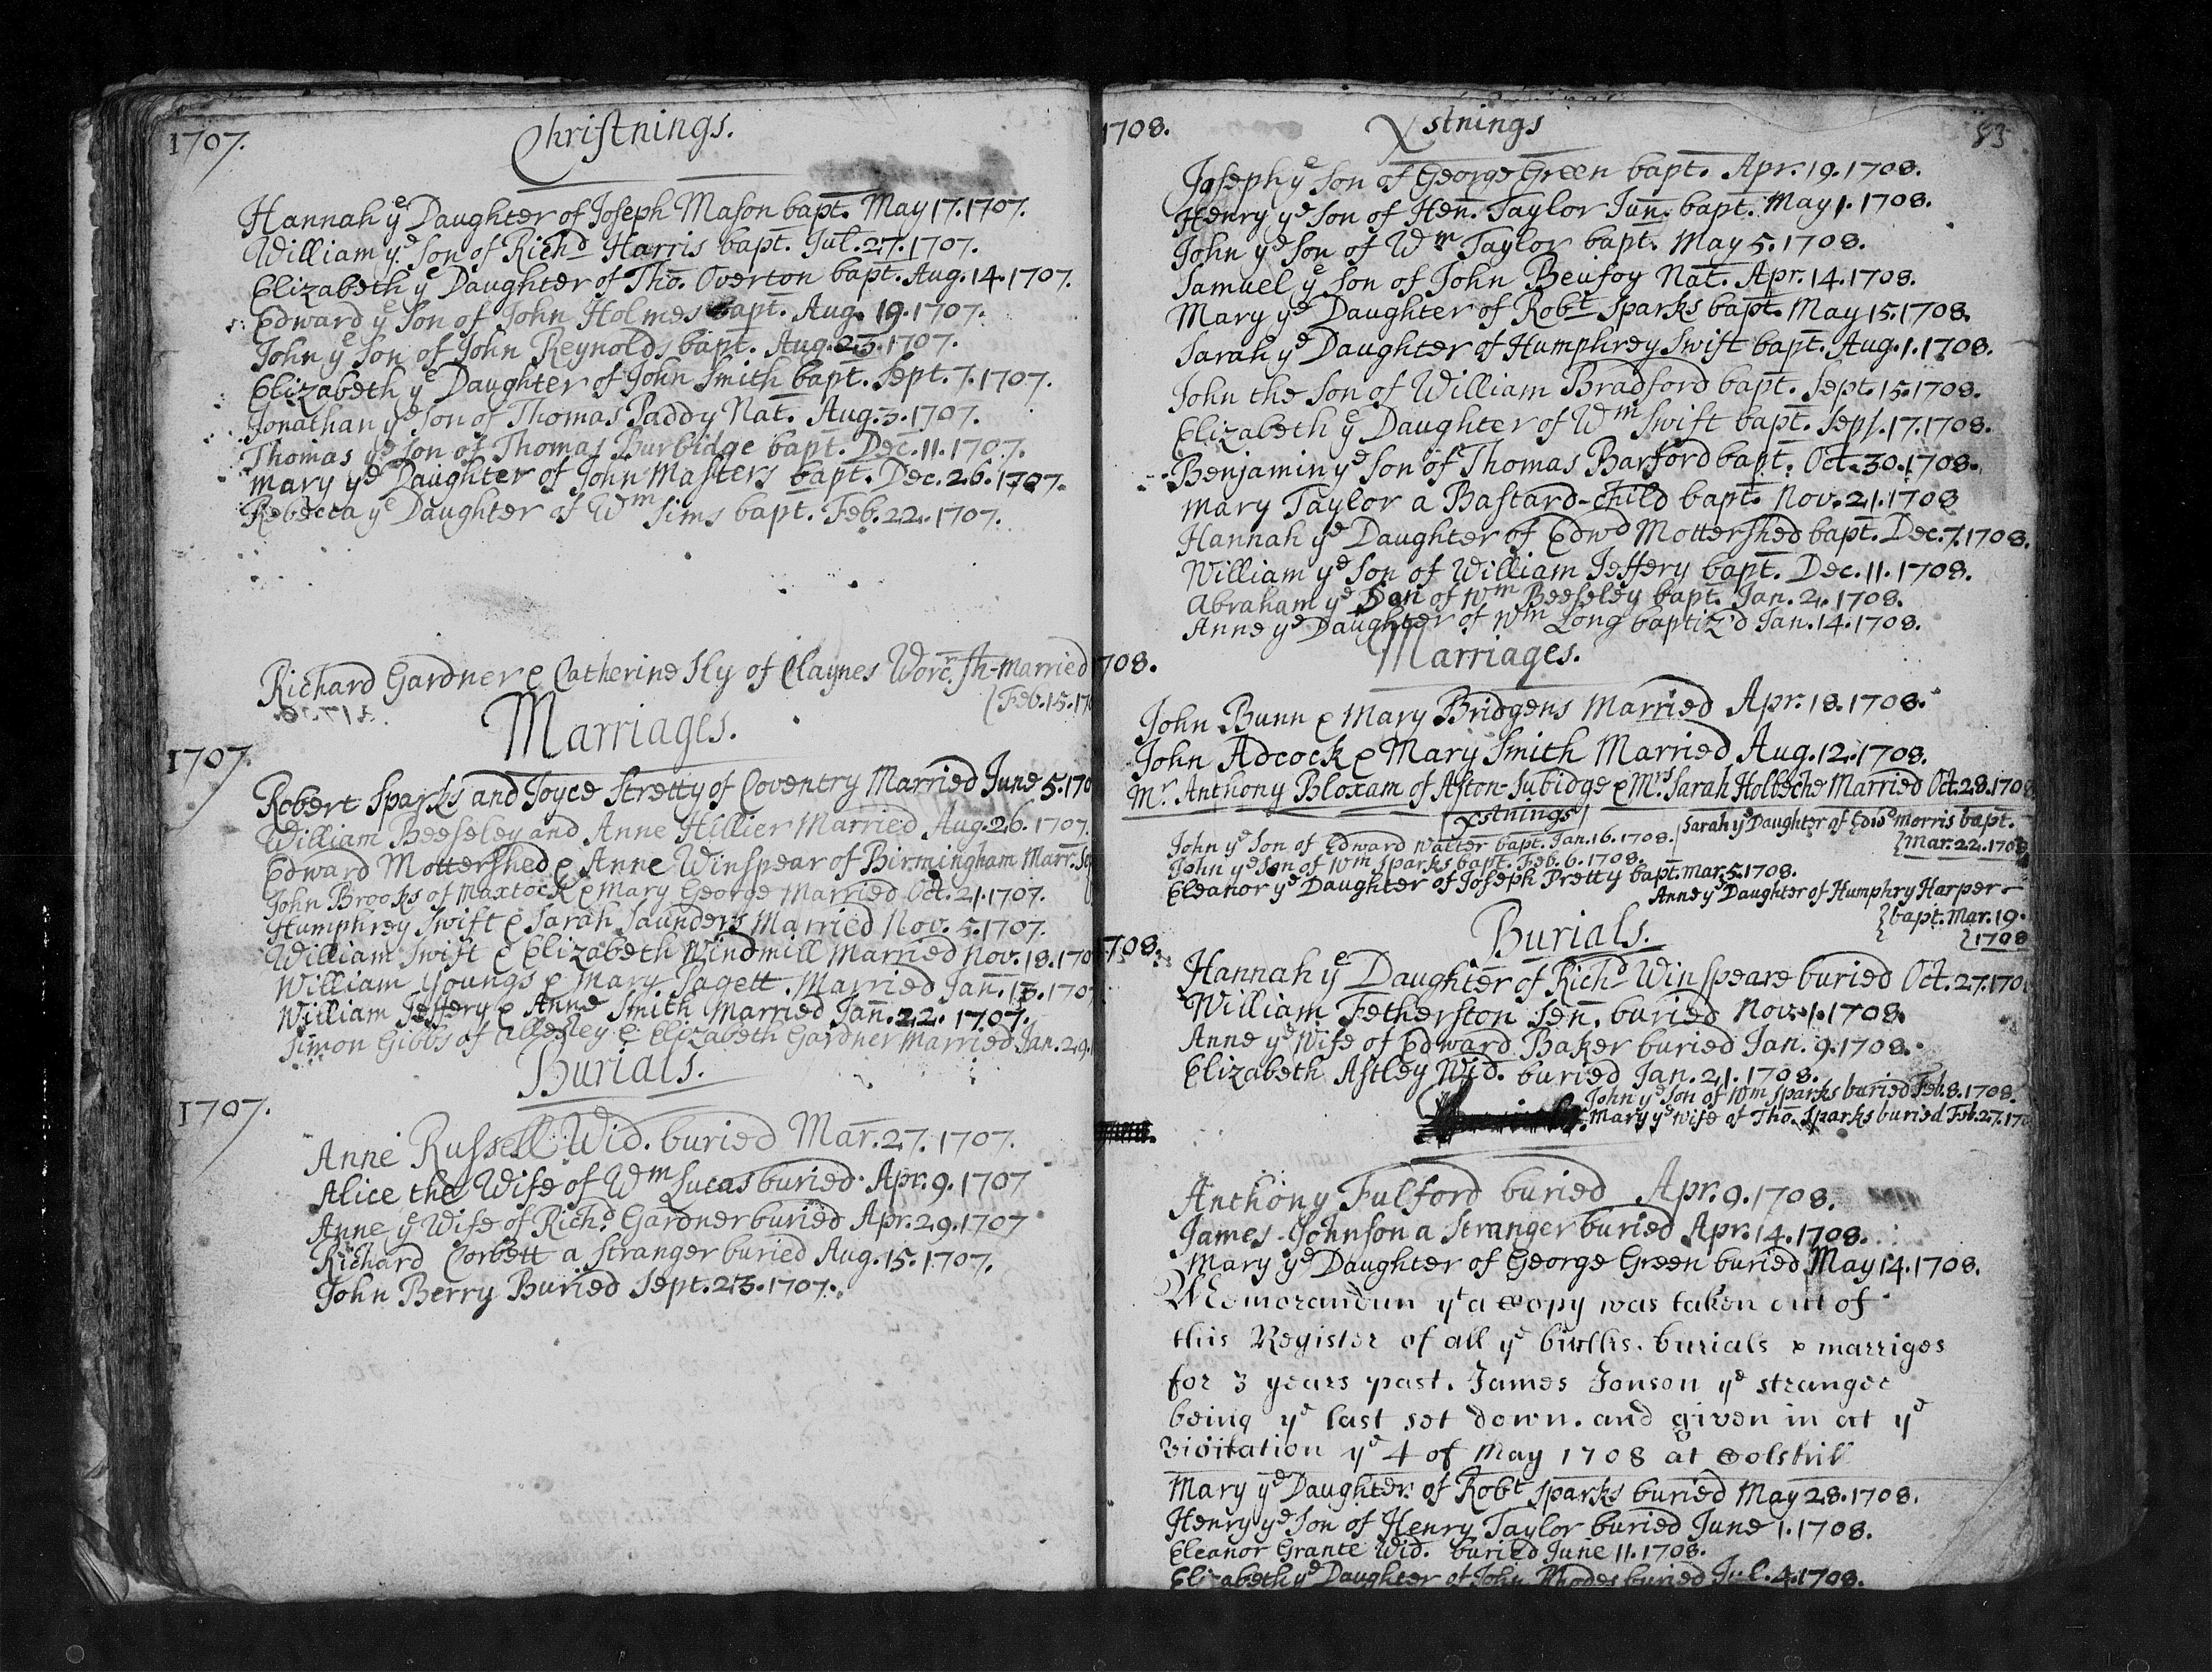 1707. Christnings.
Hannah ye Daughter of Joseph Mason bapt. May 17. 1707.
William ye Son of Richd Harris bapt. Jul. 27. 1707.
Elizabeth ye Daughter of Tho. Overton bapt. Aug. 14. 1707.
Edward ye Son of John Holmes bapt. Aug. 19. 1707.
John ye Son of John Reynolds bapt. Aug. 23. 1707.
Elizabeth ye Daughter of John Smith bapt. Sept. 7. 1707.
Jonathan ye Son of Thomas Paddy Nat. Aug. 3. 1707.
Thomas ye Son of Thomas Burbidge bapt. Dec. 11. 1707.
Mary ye Daughter of John Masters bapt. Dec. 26. 1707.
Rebecca ye Daughter of Wm Sims bapt. Feb. 22. 1707.
Richard Gardner & Catherine Sly of Claynes Worc.r sh- Married
{Feb. 15. 170
Marriages.
1707.
Robert Sparks and Joyce Stretty of Coventry Married June 5. 170
William Beeseley and Anne Hillier Married Aug. 26. 1707.
Edward Mottershed & Anne Winspear of Birmingham Marr. Se
John Brooks of Maxtock & Mary George Married Oct. 21. 1707.
Humphrey Swift & Sarah Saunders Married Nov. 5. 1707.
William Swift & Elizabeth Windmill Married Nov. 18. 170
William Youngs & Mary Pagett Married Jan. 13. 170
William Jeffery & Anne Smith Married Jan. 22. 1707.
Simon Gibbs of Allesley & Elizabeth Gardner Married Jan. 29.
Burials.
1707.
Anne Russell Wid. buried Mar. 27. 1707.
Alice the Wife of Wm Lucas buried Apr. 9. 1707
Anne ye Wife of Richd Gardner buried Apr. 29. 1707
Richard Corbett a Stranger buried Aug. 15. 1707.
John Berry Buried Sept. 23. 1707.
1708. Xstnings 83
Joseph ye Son of George Green bapt. Apr. 19. 1708.
Henry ye Son of Hen. Taylor Jun. bapt. May 1. 1708.
John ye Son of Wm Taylor bapt. May 5. 1708.
Samuel ye Son of John Beufoy Nat. Apr. 14. 1708.
Mary ye Daughter of Robt Sparks bapt. May 15. 1708.
Sarah ye Daughter of Humphrey Swift bapt. Aug. 1. 1708.
John the Son of William Bradford bapt. Sept. 15. 1708.
Elizabeth ye Daughter of Wm Swift bapt. Sept. 17. 1708.
Benjamin ye Son of Thomas Barford bapt. Oct. 30. 1708.
Mary Taylor a Bastard-child bapt. Nov. 21. 1708
Hannah ye Daughter of Edwd Mottershed bapt. Dec. 7. 1708.
William ye Son of William Jeffery bapt. Dec. 11. 1708.
Abraham ye Son of Wm Beeseley bapt. Jan. 2. 1708.
Anne ye Daughter of Wm Long baptiz'd Jan. 14. 1708.
Marriages.
1708.
John Bunn & Mary Bridgens Married Apr. 18. 1708.
John Adcock & Mary Smith Married Aug. 12. 1708.
Mr. Anthony Bloxam of Aston-Subidge & Mrs. Sarah Holbeche Married Oct. 28. 1708
Xstnings
John ye Son of Edward Walter bapt. Jan. 16. 1708.
Sarah ye Daughter of Morris bapt.
{Mar. 22. 1708
John ye Son of Wm Sparks bapt. Feb. 6. 1708.
Eleanor ye Daughter of Joseph Pretty bapt. Mar. 5. 1708.
Anne ye Daughter of Humphry Harper
{bapt. Mar. 19.
{1708
Burials.
1708.
Hannah ye Daughter of Richd Winspeare buried Oct. 27. 170
William Fetherston Sen. buried Nov. 1. 1708.
Anne ye Wife of Edward Baker buried Jan. 9. 1708.
Elizabeth Astley Wid. buried Jan. 21. 1708.
John ye Son of Wm Sparks buried Feb. 8. 1708.
Mary ye Wife of Tho. Sparks buried Feb. 27. 170
Anthony Fulford buried Apr. 9. 1708.
James Johnson a Stranger buried Apr. 14. 1708.
Mary ye Daughter of George Green buried May 14. 1708.
Memorandum yt a Copy was taken out of
this Register of all ye births. burials & marriges
for 3 years past. James Jonson ye stranger
being ye last set down. and given in at ye
visitation ye 4 of May 1708 at Colshill
Mary ye Daughter of Robt Sparks buried May 28. 1708.
Henry ye Son of Henry Taylor buried June 1. 1708.
Eleanor Grante Wid. buried June 11. 1708.
Elizabeth ye Daughter of John Rhodes buried Jul. 4. 1708.